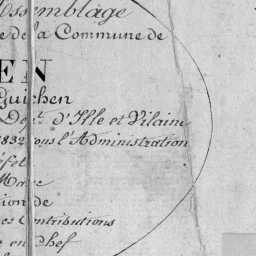 Assemblage
e de la Commune de
EN
Guichen
Dept. d'Ille et Vilaine
1832 sous l'Administration
éfet
Maire
tion de
es Contributions
r en Chef